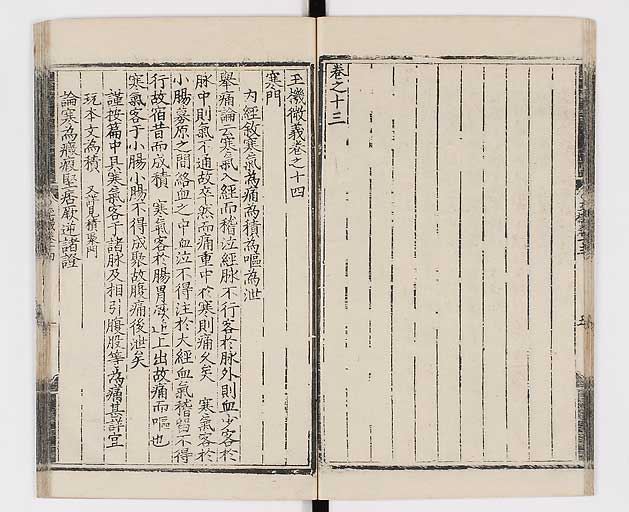 卷之十三
玉機微義卷之十四
寒門
內經敘寒氣為痛為積為嘔為泄
舉痛論云寒氣入經而稽泣經脉不行客於脉外則血少客於
脉中則氣不通故卒然而痛重中於寒則痛久矣 寒氣客於
小腸募原之間絡血之中血泣不得注於大經血氣稽留不得
行故宿昔而成積 寒氣客於腸胃厥逆上出故痛而嘔也
寒氣客于小腸小腸不得成聚故腹痛後泄矣
謹按篇中具寒氣客于諸脉及相引腹股等為痛甚詳宜
玩本文為積 又詳見積聚門
論寒為癥瘕堅痞厥逆諸證